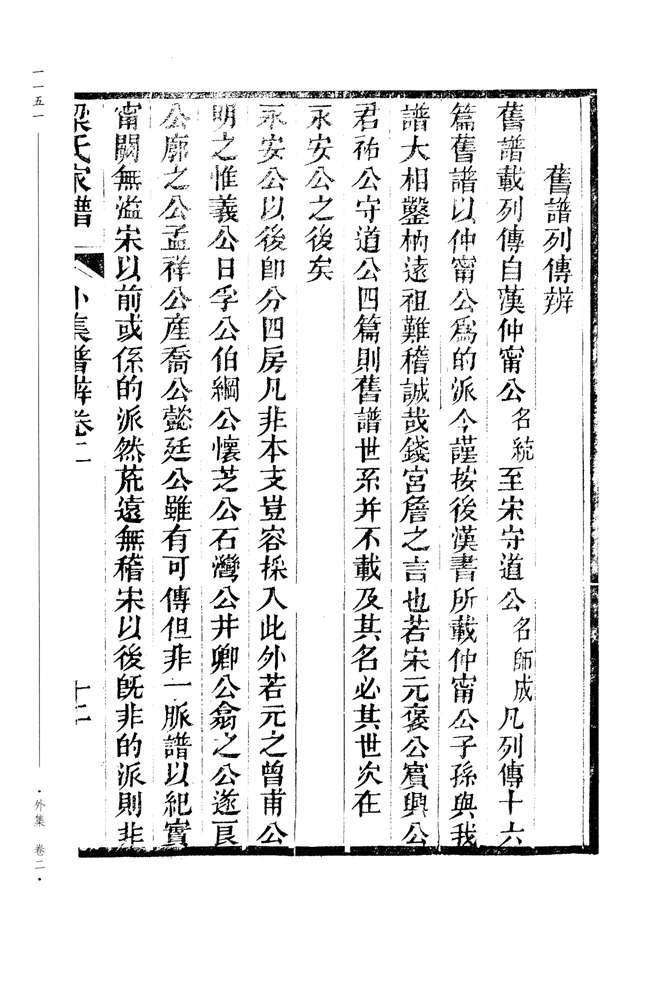 舊譜列傳辨
舊譜載列傳自漢仲甯公名統至宋守道公名師成凡列傳十六
篇舊譜以仲甯公爲的派今謹按後漢書所載仲甯公子孫與我
譜大相鑿枘遠祖難稽誠哉錢宮詹之言也若宋元褒公賓興公
君祐公守道公四篇則舊譜世系并不載及其名必其世次在
永安公之後矣
永安公以後卽分四房凡非本支豈容採入此外若元之曾甫公
明之惟義公日孚公伯綱公懷芝公石灣公井卿公翕之公遂良
公廓之公孟祥公產喬公懿廷公雖有可傳但非一脈譜以紀實
甯闕無溢宋以前或係的派然荒遠無稽宋以後旣非的派則非
梁氏家譜 外集譜辨卷二 十二
一一五一
·外集 卷二·